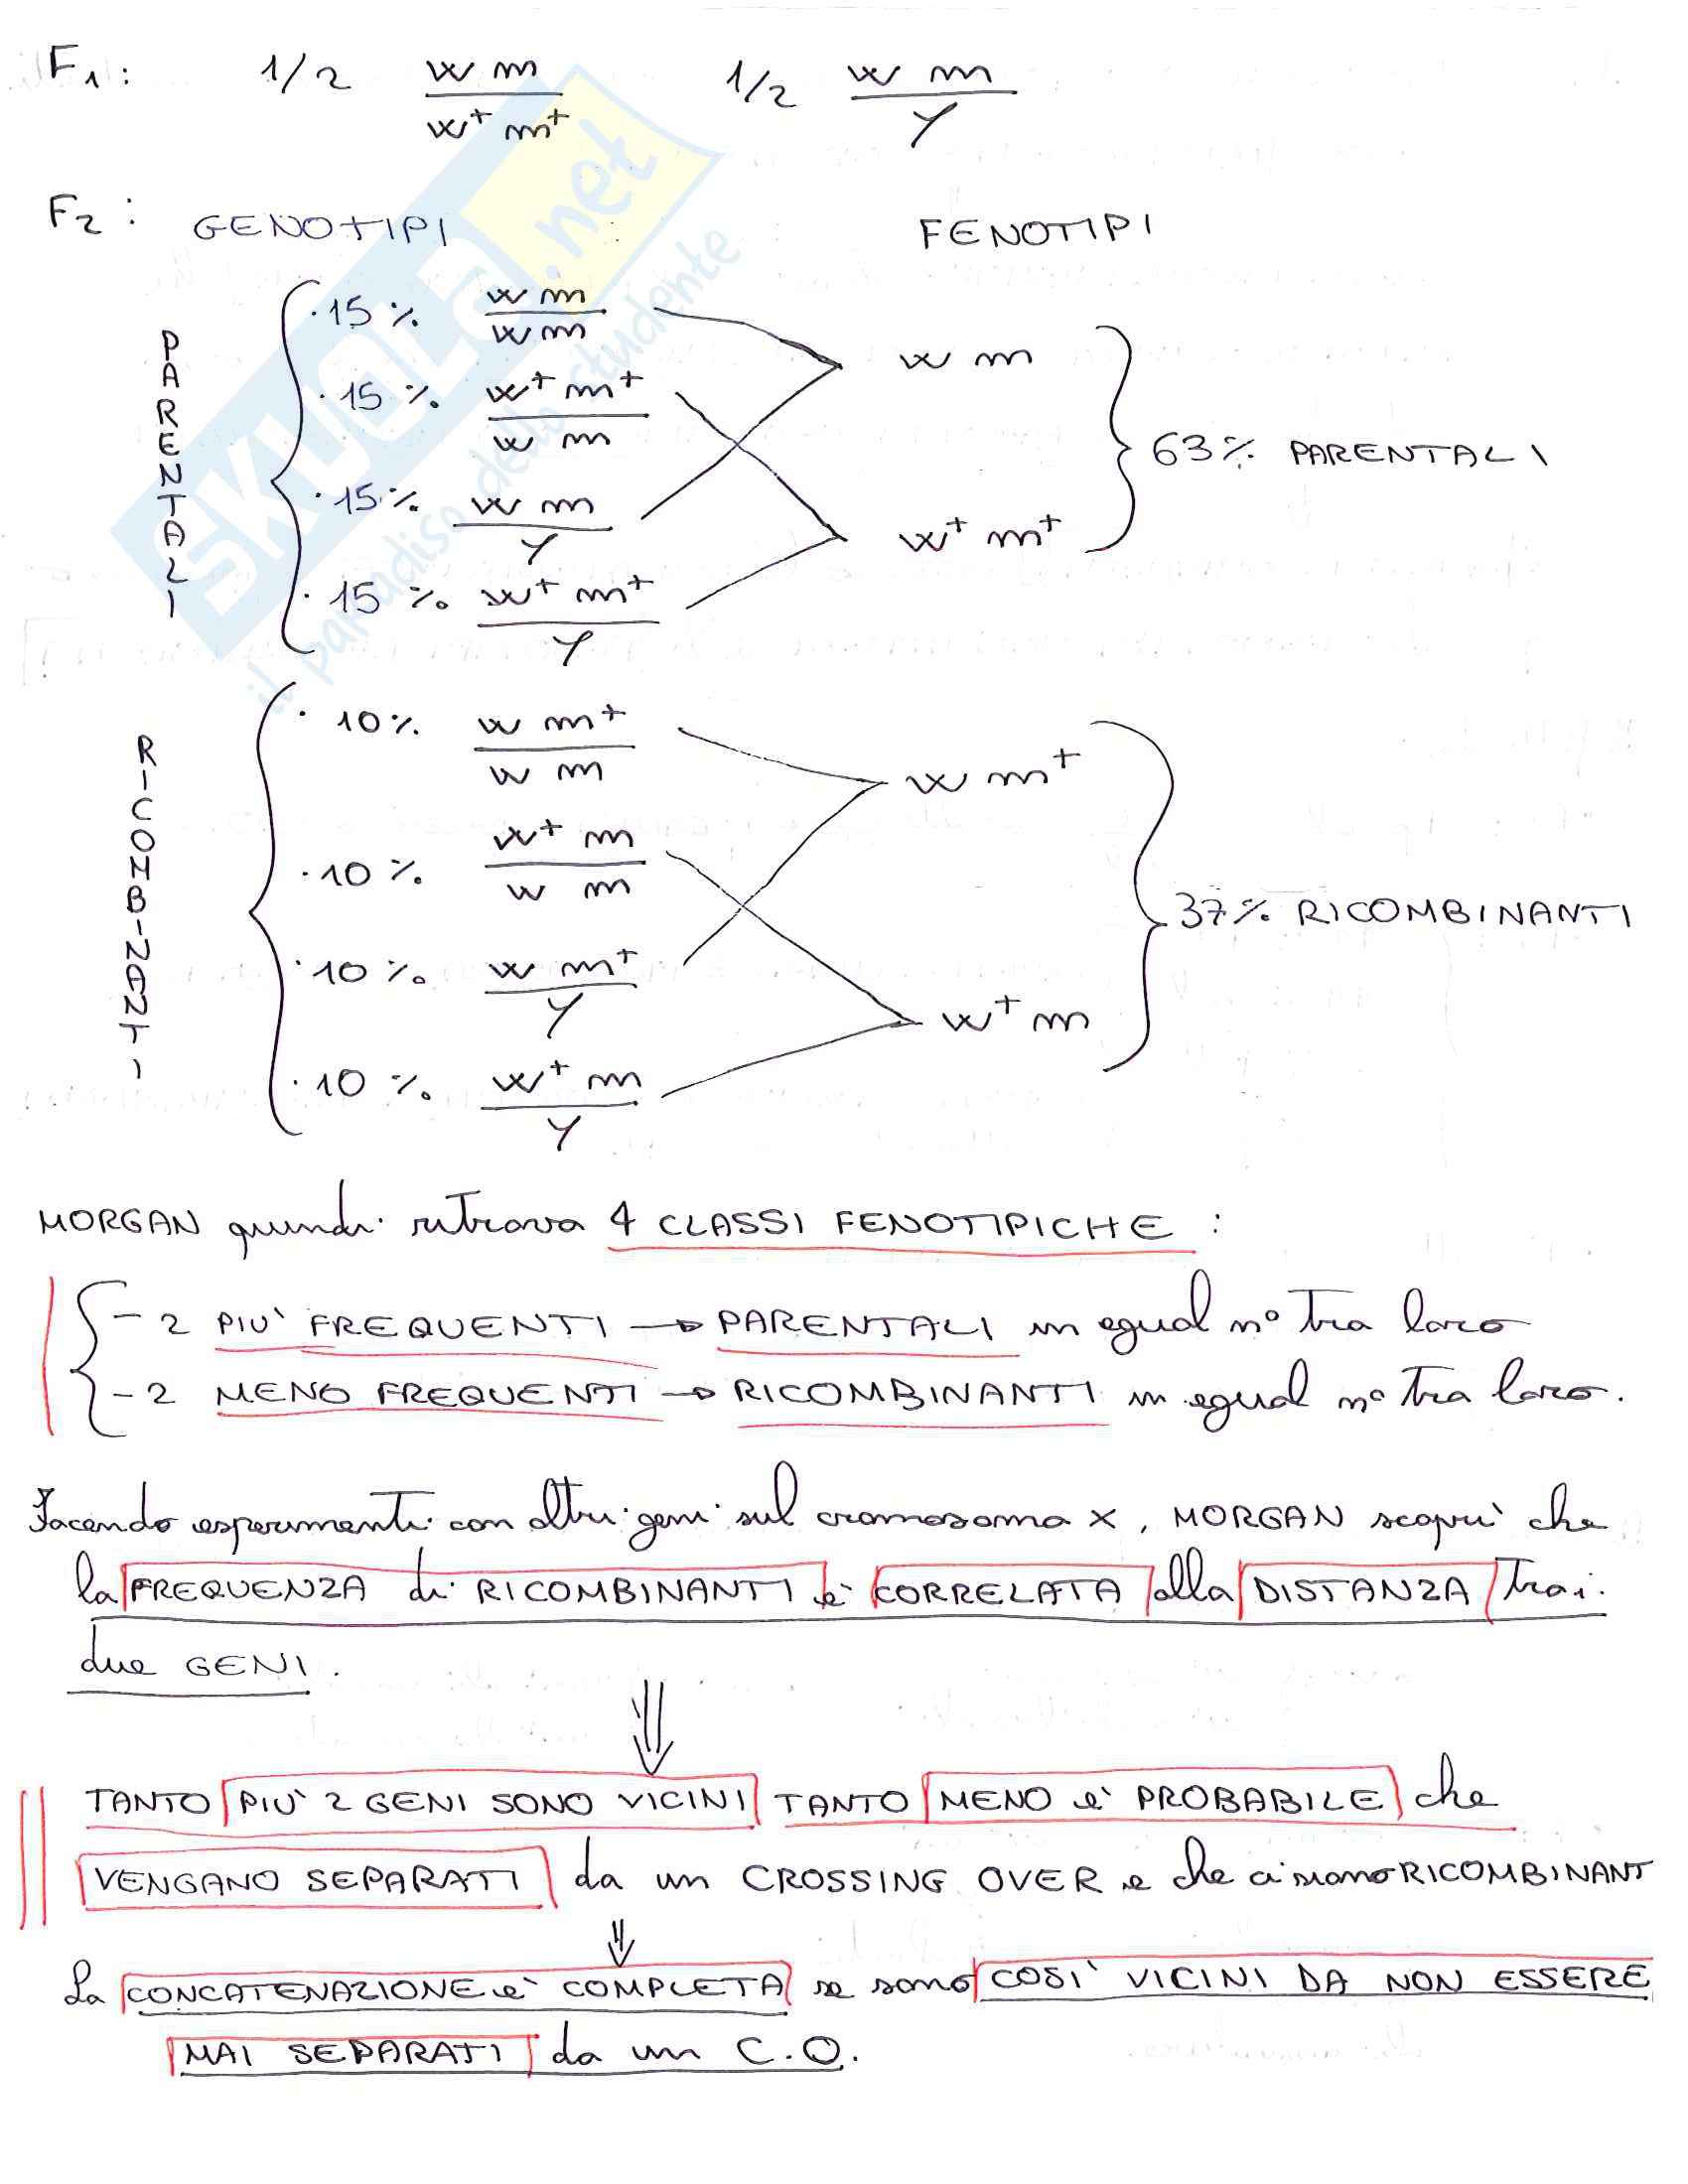 F1: 1/2 w m / w+ m+ 1/2 w m / Y
F2: GENOTIPI FENOTIPI
PARENTALI
· 15 % w m / w m
· 15 % w+ m+ / w m
· 15 % w m / Y
· 15 % w+ m+ / Y
w m
w+ m+
63 % PARENTALI
RICOMBINANTI
· 10 % w m+ / w m
· 10 % w+ m / w m
· 10 % w m+ / Y
· 10 % w+ m / Y
w m+
w+ m
37 % RICOMBINANTI
MORGAN quindi ritrova 4 CLASSI FENOTIPICHE :
- 2 PIU' FREQUENTI → PARENTALI in egual n° tra loro
- 2 MENO FREQUENTI → RICOMBINANTI in egual n° tra loro.
Facendo esperimenti con altri geni sul cromosoma X, MORGAN scoprì che
la FREQUENZA di RICOMBINANTI è CORRELATA alla DISTANZA tra i
due GENI.
TANTO PIU' 2 GENI SONO VICINI TANTO MENO è PROBABILE che
VENGANO SEPARATI da un CROSSING OVER e che ci siano RICOMBINANT
La CONCATENAZIONE è COMPLETA se sono COSI' VICINI DA NON ESSERE
MAI SEPARATI da un C.O.
SKUOLA.net
il paradiso dello studente